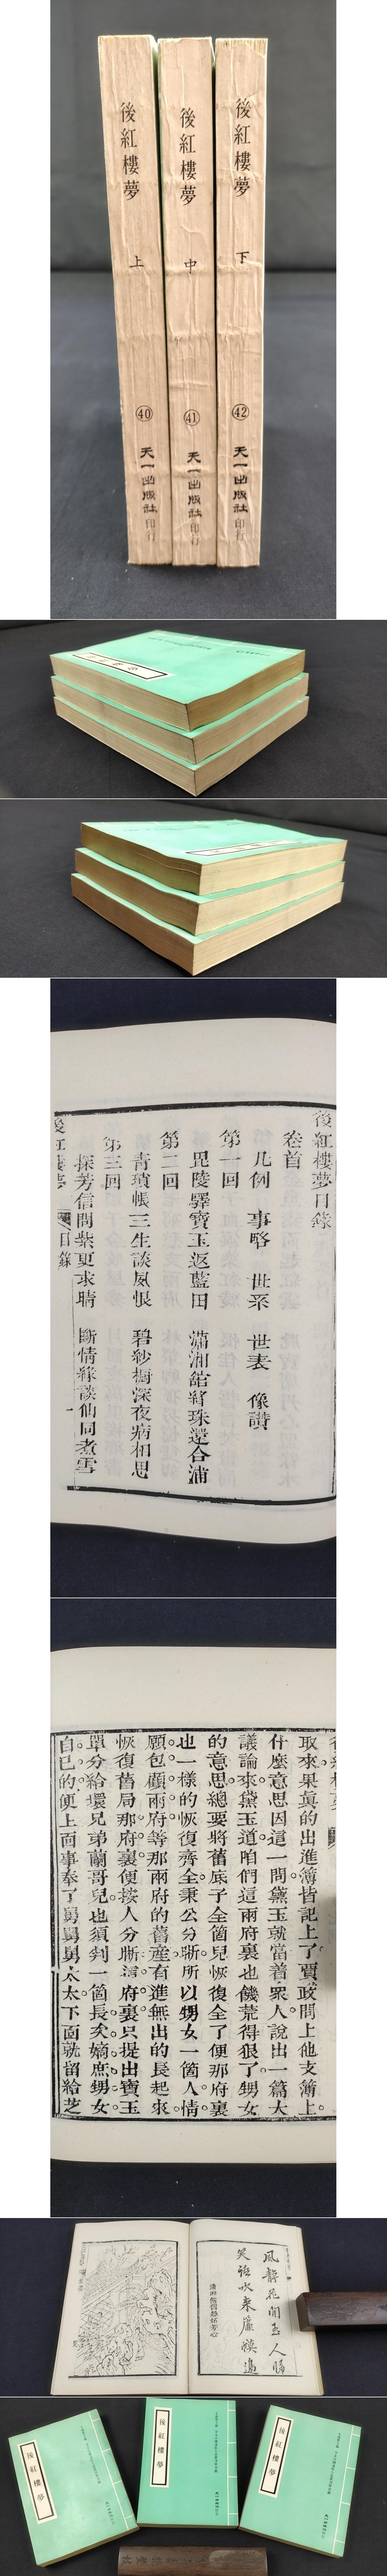 後紅樓夢 上 ㊵ 天一出版社印行
後紅樓夢 中 ㊶ 天一出版社印行
後紅樓夢 下 ㊷ 天一出版社印行
後紅樓夢目錄
卷首
凡例 事略 世系 世表 像讚
第一回
毘陵驛寶玉返藍田 瀟湘舘絳珠還合浦
第二回
青瑣帳三生談夙恨 碧紗櫥深夜病相思
第三回
探芳信問紫更求晴 斷情緣談仙同煮雪
後紅樓夢 目錄 一
取來果真的出進簿皆記上了賈政問上他支簿上
什麼意思因這一問黛玉就當着衆人說出一篇大
議論來黛玉道咱們這兩府裏也饑荒得狠了甥女
的意思總要將舊底子全箇兒恢復全了便那府裏
也一樣的恢復齊全秉公分晰所以甥女一箇人情
願包顧兩府等那兩府的舊產有進無出的長起來
恢復舊局那府裏便按人分晰這府裏只提出寶玉
單分給環兄弟蘭哥兒也須判一箇長次嫡庶甥女
自己的便上面事奉了舅舅舅太太下面就留給芝
風靜花開玉人歸
笑語吹來簾模邊
後紅樓夢
後紅樓夢
後紅樓夢